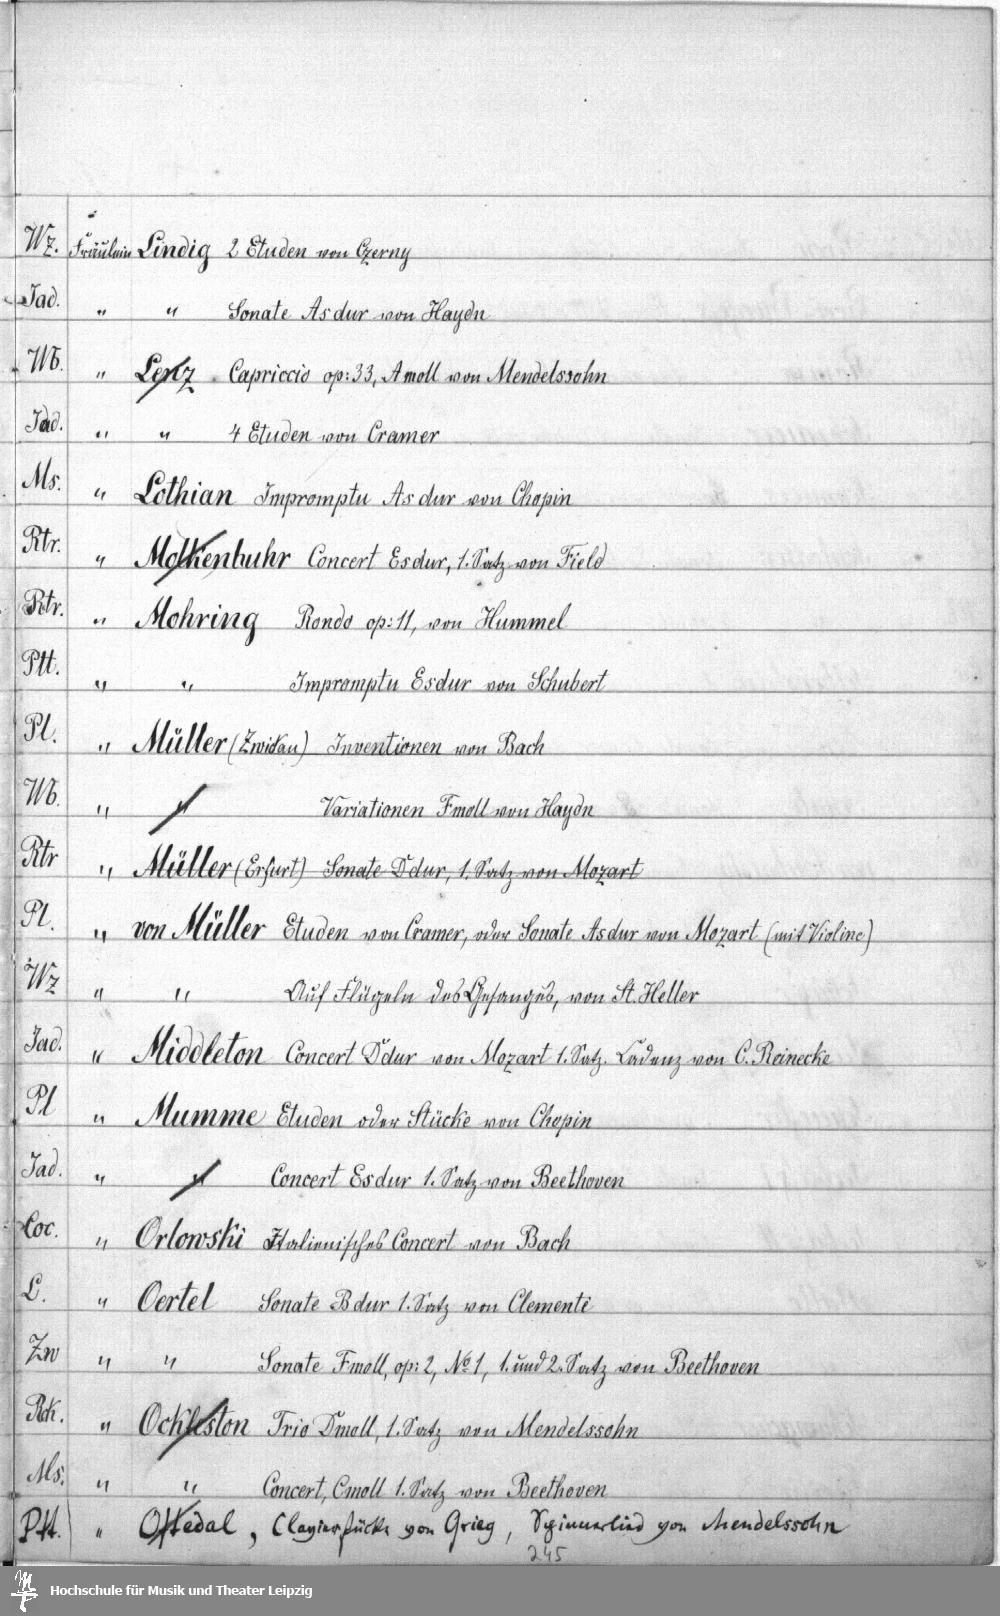 Wz. Fräulein Lindig 2 Etuden von Czerny
Jad. " " Sonate Asdur von Haydn
Wb. " Lenz Capriccio op: 33, Amoll von Mendelssohn
Jad. " " 4 Etuden von Cramer
Ms. " Lothian Impromptu Asdur von Chopin
Rtr. " Molkenbuhr Concert Esdur, 1. Satz von Field
Rtr. " Mohring Rondo op: 11, von Hummel
Ptt. " " Impromptu Esdur von Schubert
Pl. " Müller (Zwickau) Inventionen von Bach
Wb. " " Variationen Fmoll von Haydn
Rtr " Müller (Erfurt) Sonate Ddur, 1. Satz von Mozart
Pl. " von Müller Etuden von Cramer, oder Sonate Asdur von Mozart (mit Violine)
Wz " " Auf Flügeln des Gesanges, von St. Heller
Jad. " Middleton Concert Ddur von Mozart 1. Satz. Cadenz von C. Reinecke
Pl " Mumme Etuden oder Stücke von Chopin
Jad. " " Concert Esdur 1. Satz von Beethoven
Coc. " Orlowski Italienisches Concert von Bach
L. " Oertel Sonate Bdur 1. Satz von Clementi
Zw " " Sonate Fmoll, op: 2, No 1, 1. und 2. Satz von Beethoven
Rck. " Ockleston Trio Dmoll, 1. Satz von Mendelssohn
Ms. " " Concert, Cmoll 1. Satz von Beethoven
Ptt. " Oftedal, Clavierstücke von Grieg, Spinnerlied von Mendelssohn
245
Hochschule für Musik und Theater Leipzig